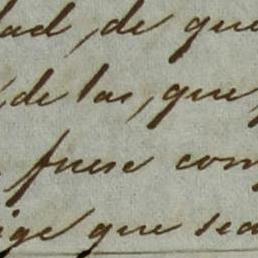 dad, de que
de las, que,
fuese com
ige que sea